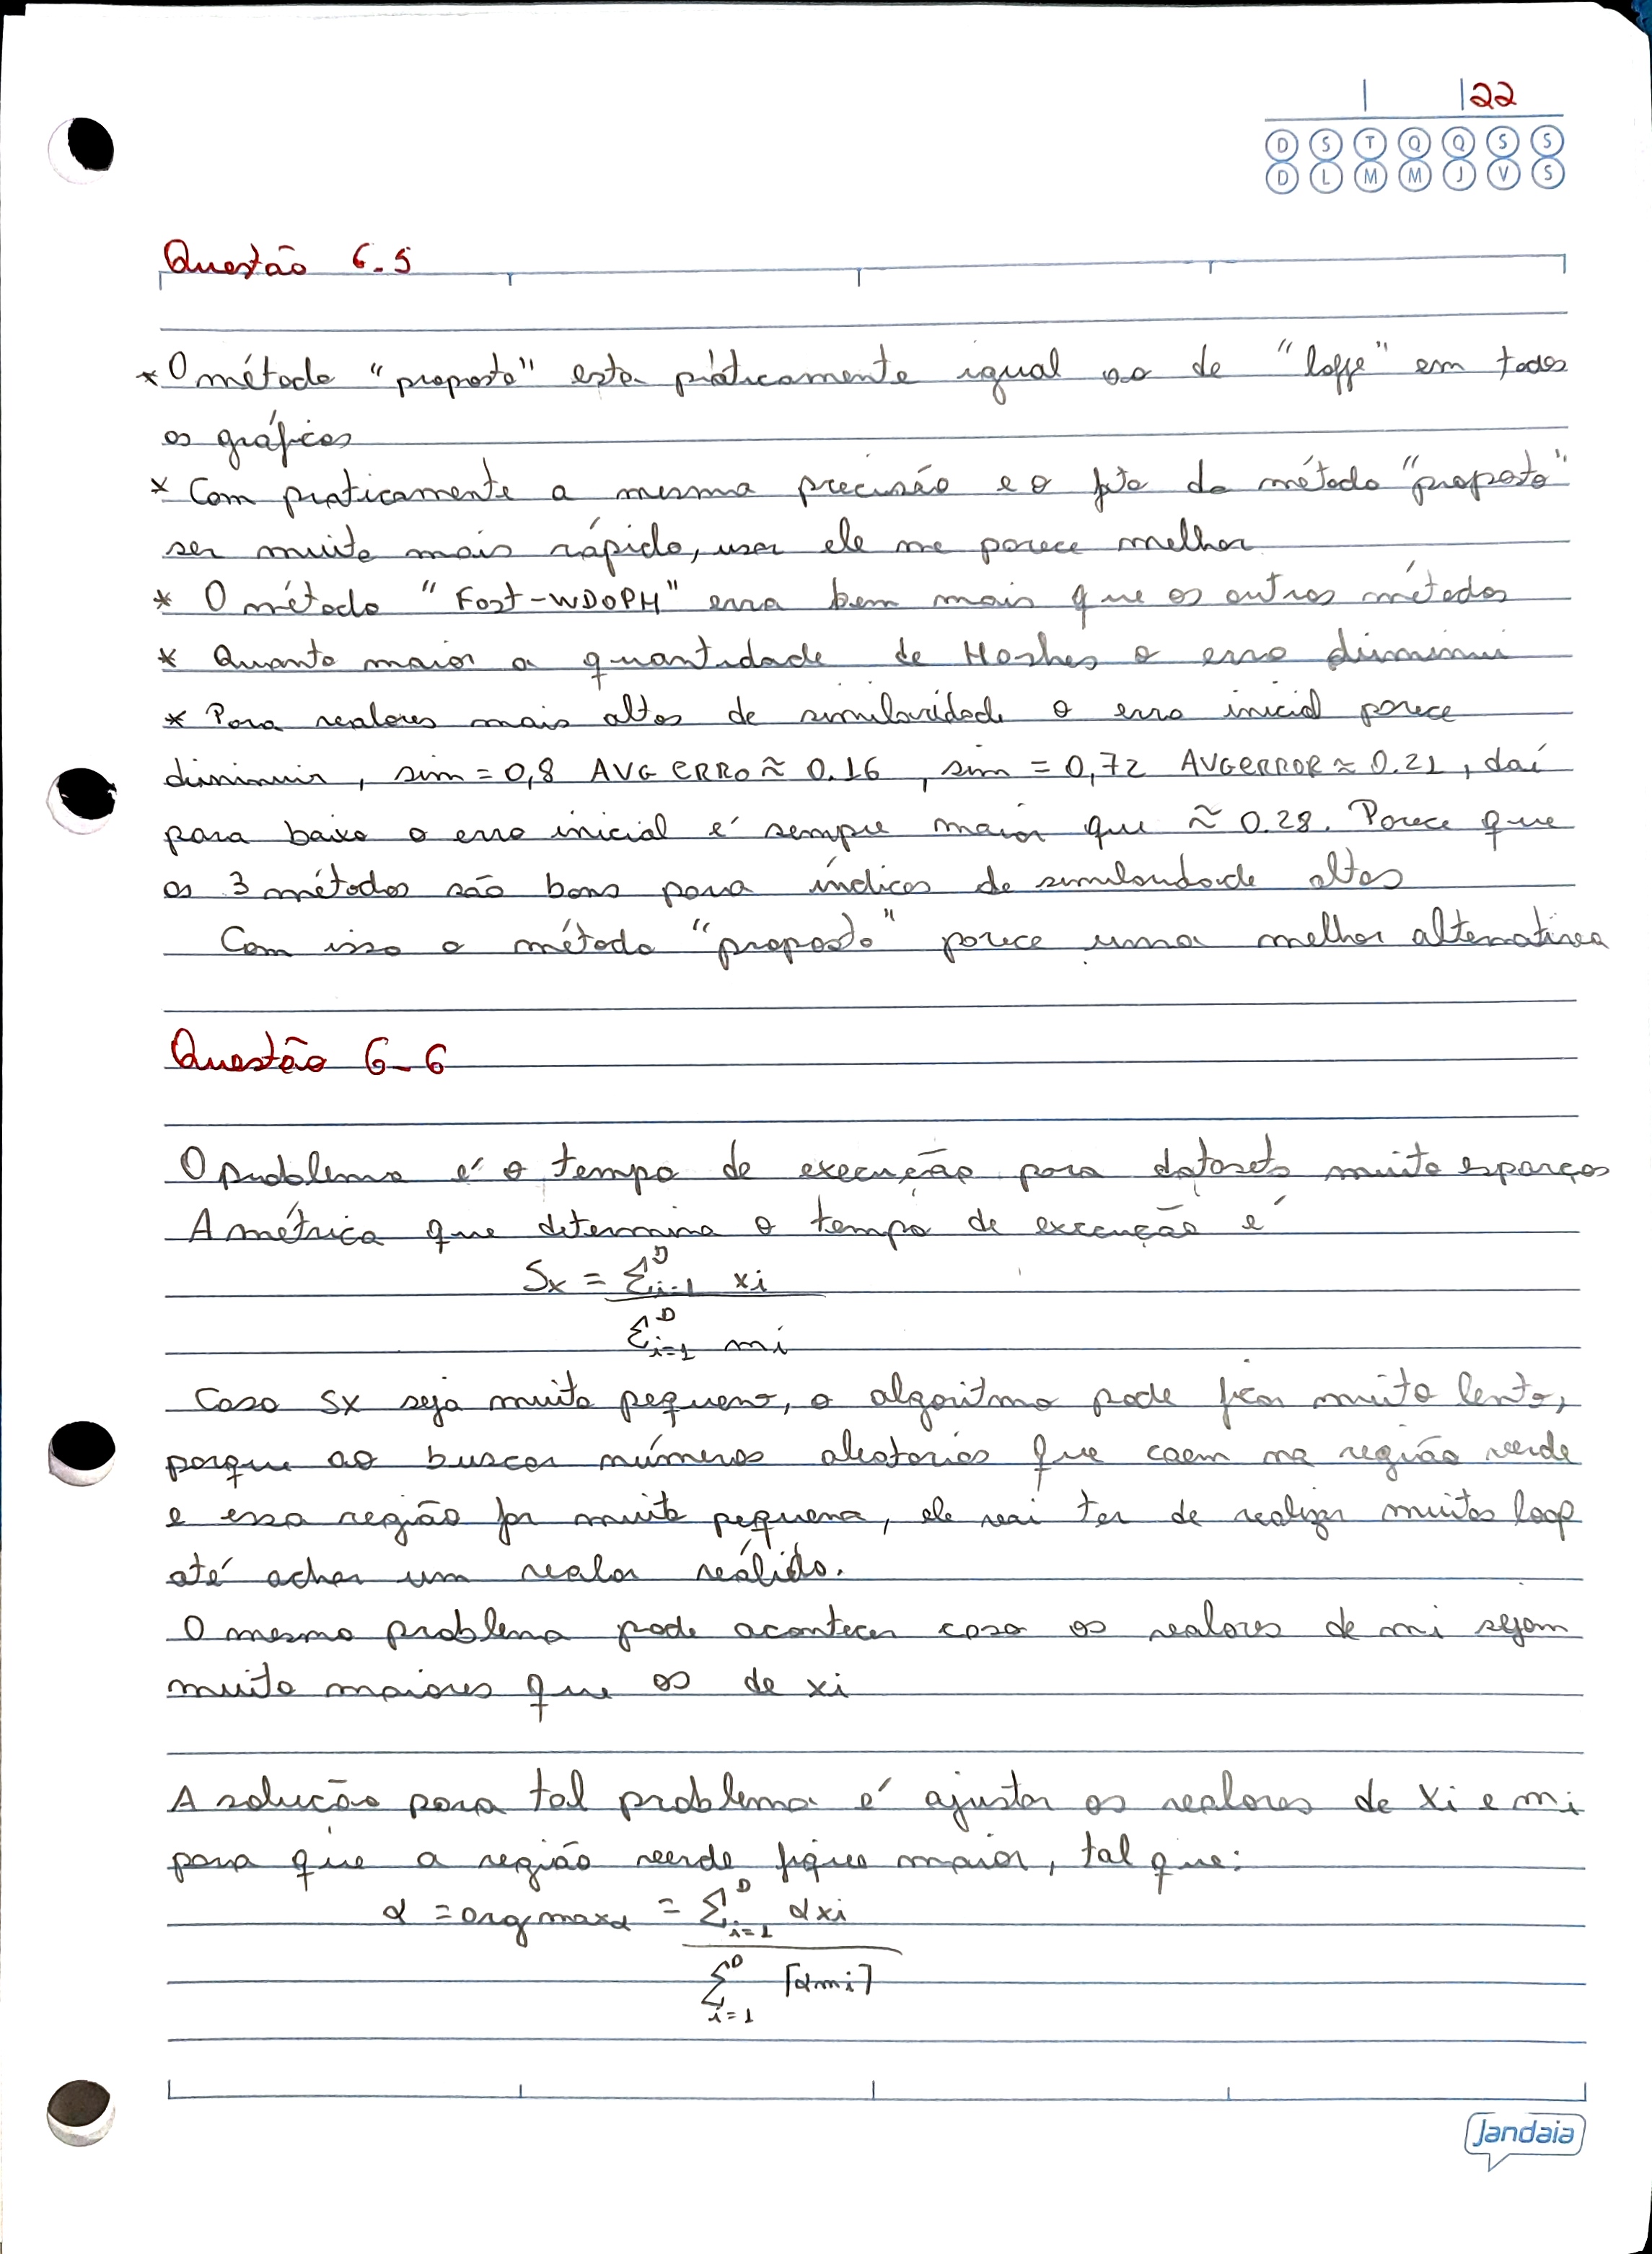 22
D S T Q Q S S
D L M M J V S
Questão 6-5
* O método "proposto" esta práticamente igual ao de "Ioffe" em todos
os gráficos
* Com praticamente a mesma precisão e o fato do método "proposto"
ser muito mais rápido, usar ele me parece melhor
* O método "Fast-WDOPH" erra bem mais que os outros métodos
* Quanto maior a quantidade de Hashes o erro diminui
* Para valores mais altos de similaridade o erro inicial parece
diminuir, sim = 0,8 AVG ERRO ≈ 0.16, sim = 0,72 AVGERROR ≈ 0.21, daí
para baixo o erro inicial é sempre maior que ≈ 0.28. Parece que
os 3 métodos são bons para índices de similaridade altos
Com isso o método "proposto" parece uma melhor alternativa
Questão 6-6
O problema é o tempo de execução para datasets muito esparços
A métrica que determina o tempo de execução é
Sx = Σ_{i=1}^{D} xi
Σ_{i=1}^{D} mi
Caso Sx seja muito pequeno, o algoritmo pode ficar muito lento,
porque ao buscar números aleatorios que caem na região verde
e essa região for muito pequena, ele vai ter de realizar muitos loop
até achar um valor válido.
O mesmo problema pode acontecer caso os valores de mi sejam
muito maiores que os de xi
A solução para tal problema é ajustar os valores de xi e mi
para que a região verde fique maior, tal que:
α = argmaxα = Σ_{i=1}^{D} αxi
Σ_{i=1}^{D} ⌈αmi⌉
Jandaia